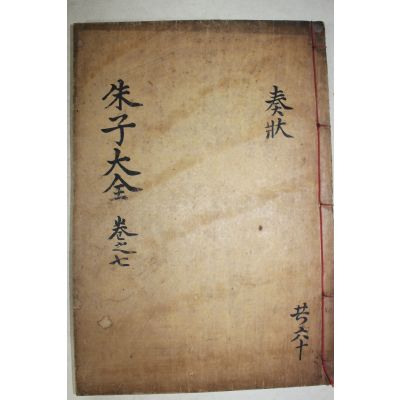 奏狀
朱子大全 卷之七
共六十